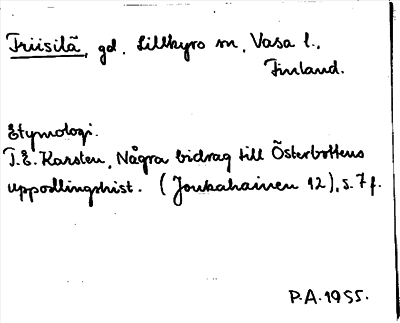 Friisilä, gd, Lillkyro sn, Vasa l.,
Finland.
Etymologi.
T.E. Karsten, Några bidrag till Österbottens
uppodlingshist. (Joukahainen 12), s. 7 f.
P.A. 1955.